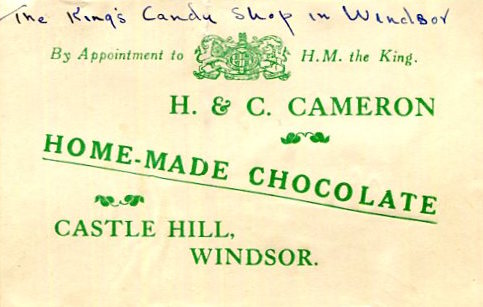 The King's Candy Shop in Windsor
By Appointment to H.M. the King.
H. & C. CAMERON
HOME-MADE CHOCOLATE
CASTLE HILL,
WINDSOR.